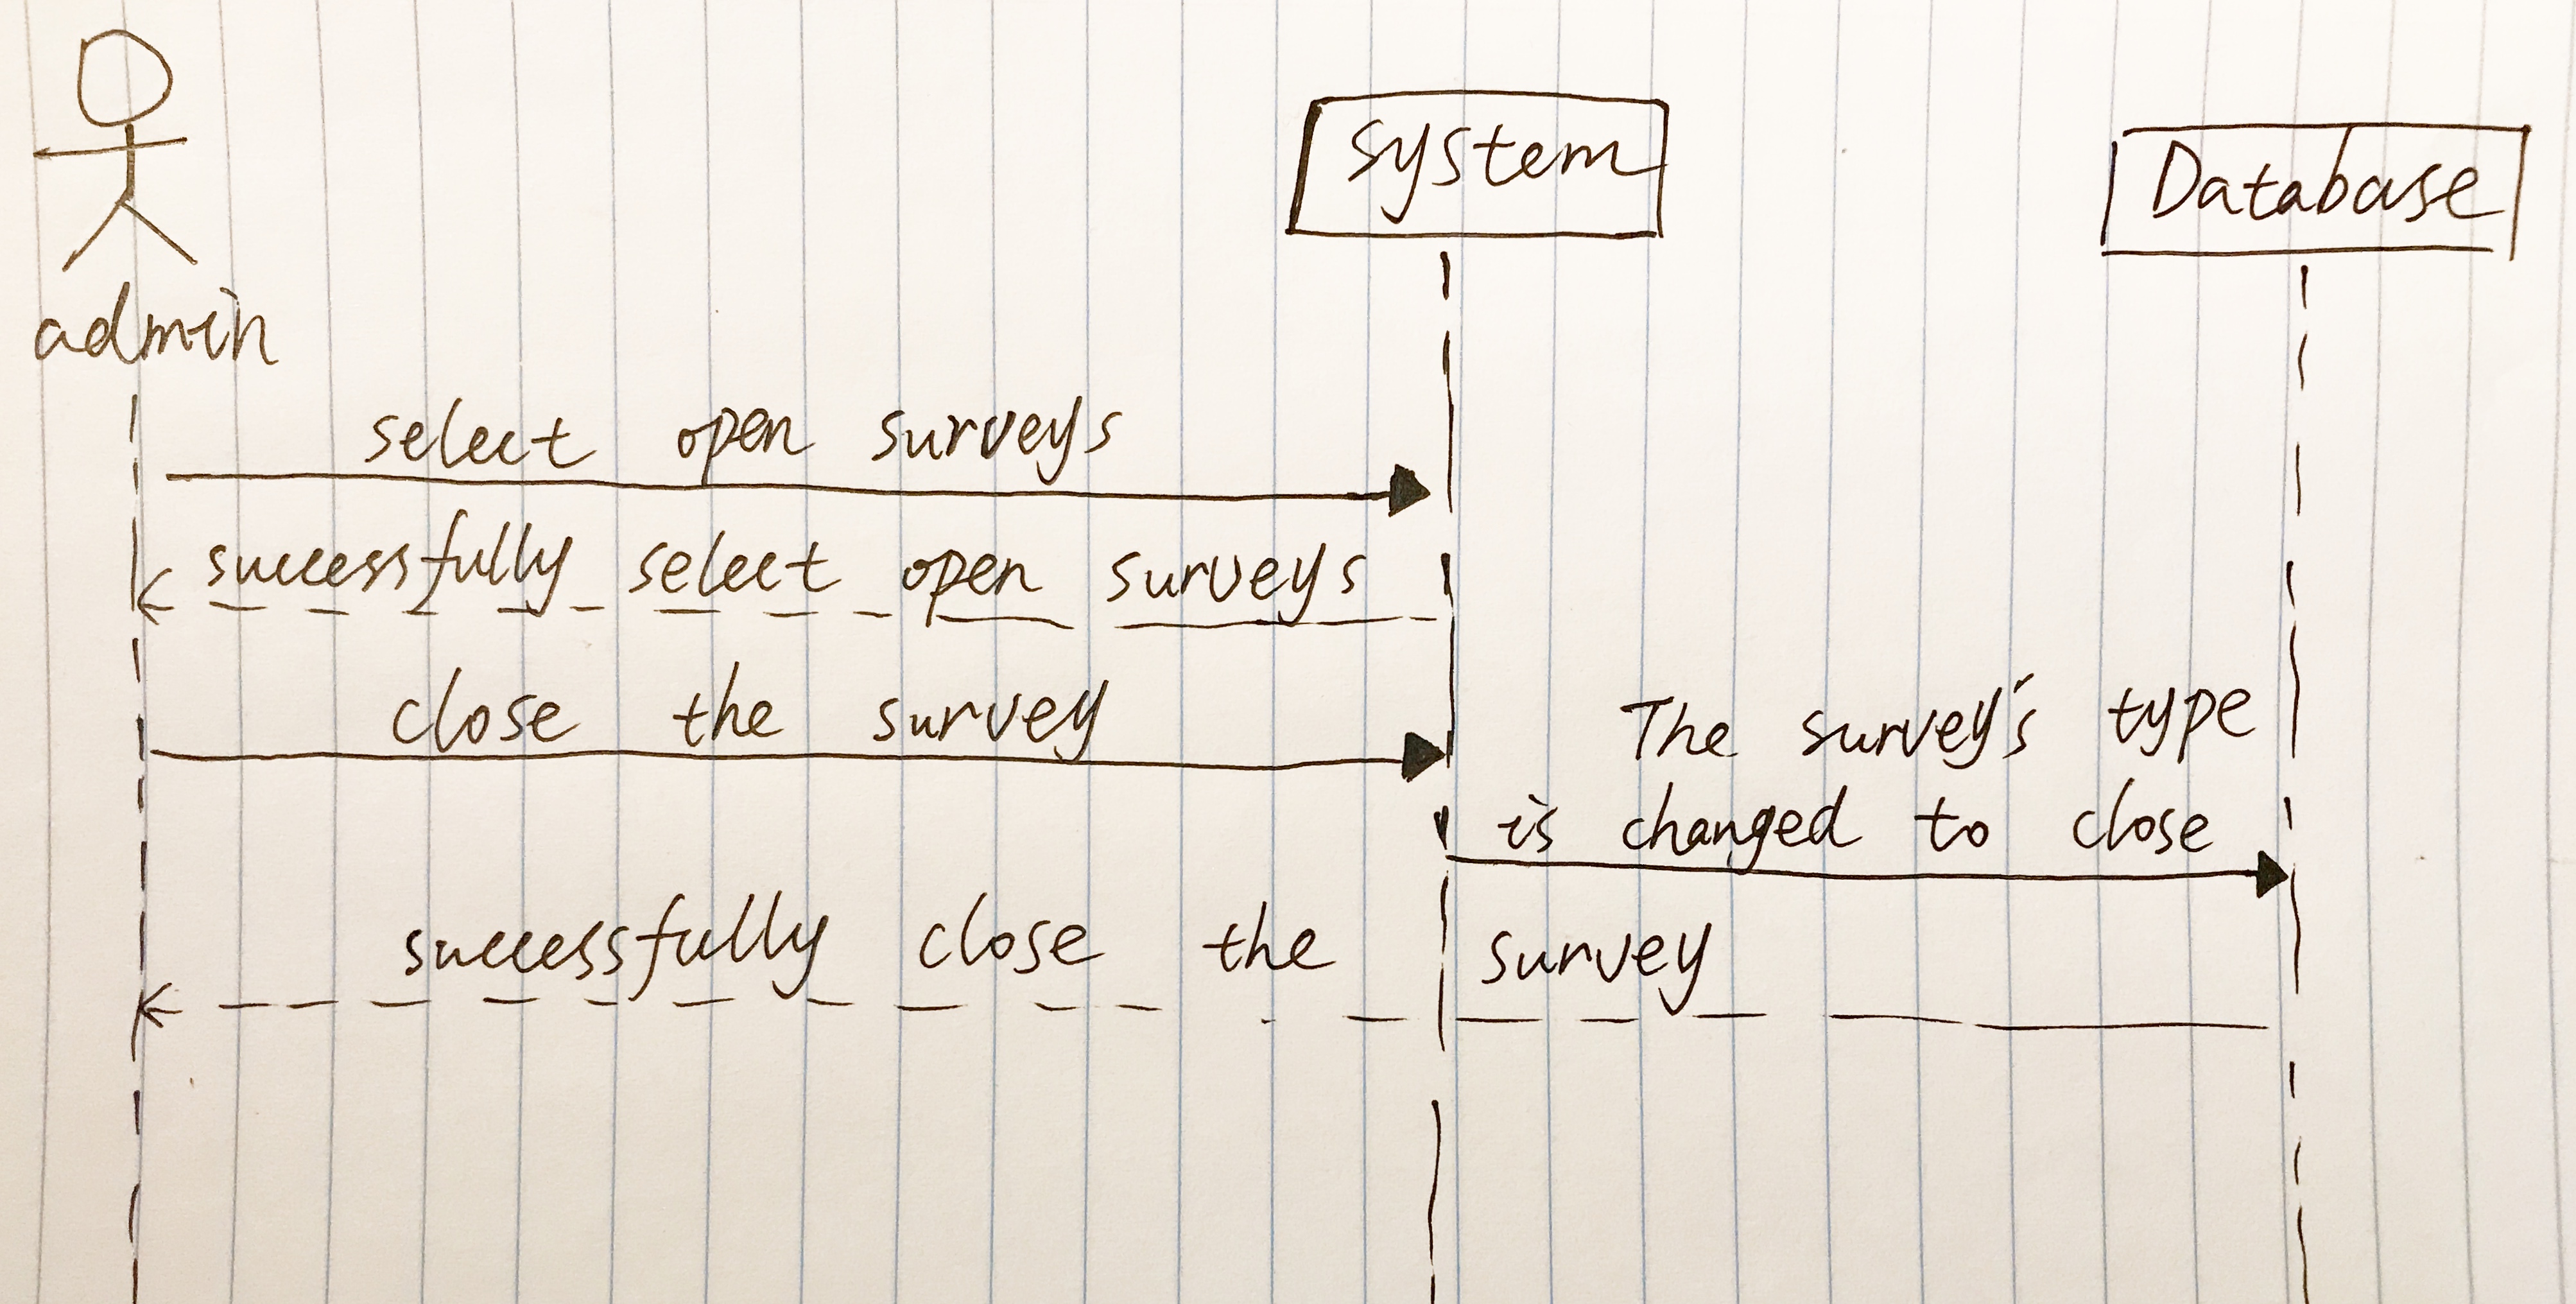 system
Database
admin
select open surveys
successfully select open surveys
close the survey
The survey's type
is changed to close
successfully close the survey